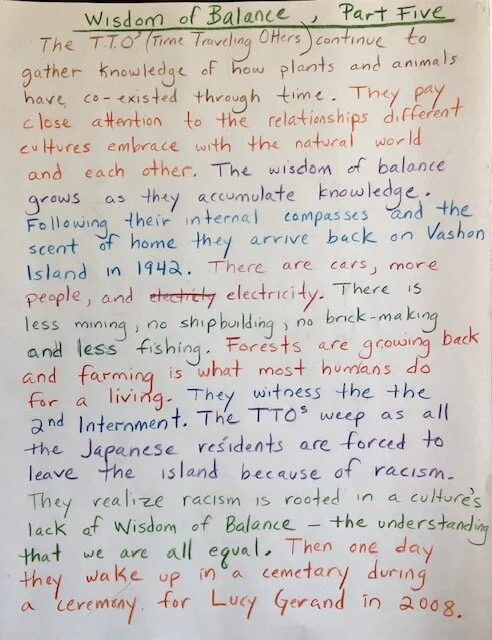 Wisdom of Balance, Part Five
The T.T.O's (Time Traveling Otters) continue to
gather knowledge of how plants and animals
have co-existed through time. They pay
close attention to the relationships different
cultures embrace with the natural world
and each other. The wisdom of balance
grows as they accumulate knowledge.
Following their internal compasses and the
scent of home they arrive back on Vashon
Island in 1942. There are cars, more
people, and electricity electricity. There is
less mining, no shipbuilding, no brick-making
and less fishing. Forests are growing back
and farming is what most humans do
for a living. They witness the the
2nd Internment. The TTOs weep as all
the Japanese residents are forced to
leave the island because of racism.
They realize racism is rooted in a culture's
lack of Wisdom of Balance – the understanding
that we are all equal. Then one day
they wake up in a cemetary during
a ceremony for Lucy Gerand in 2008.